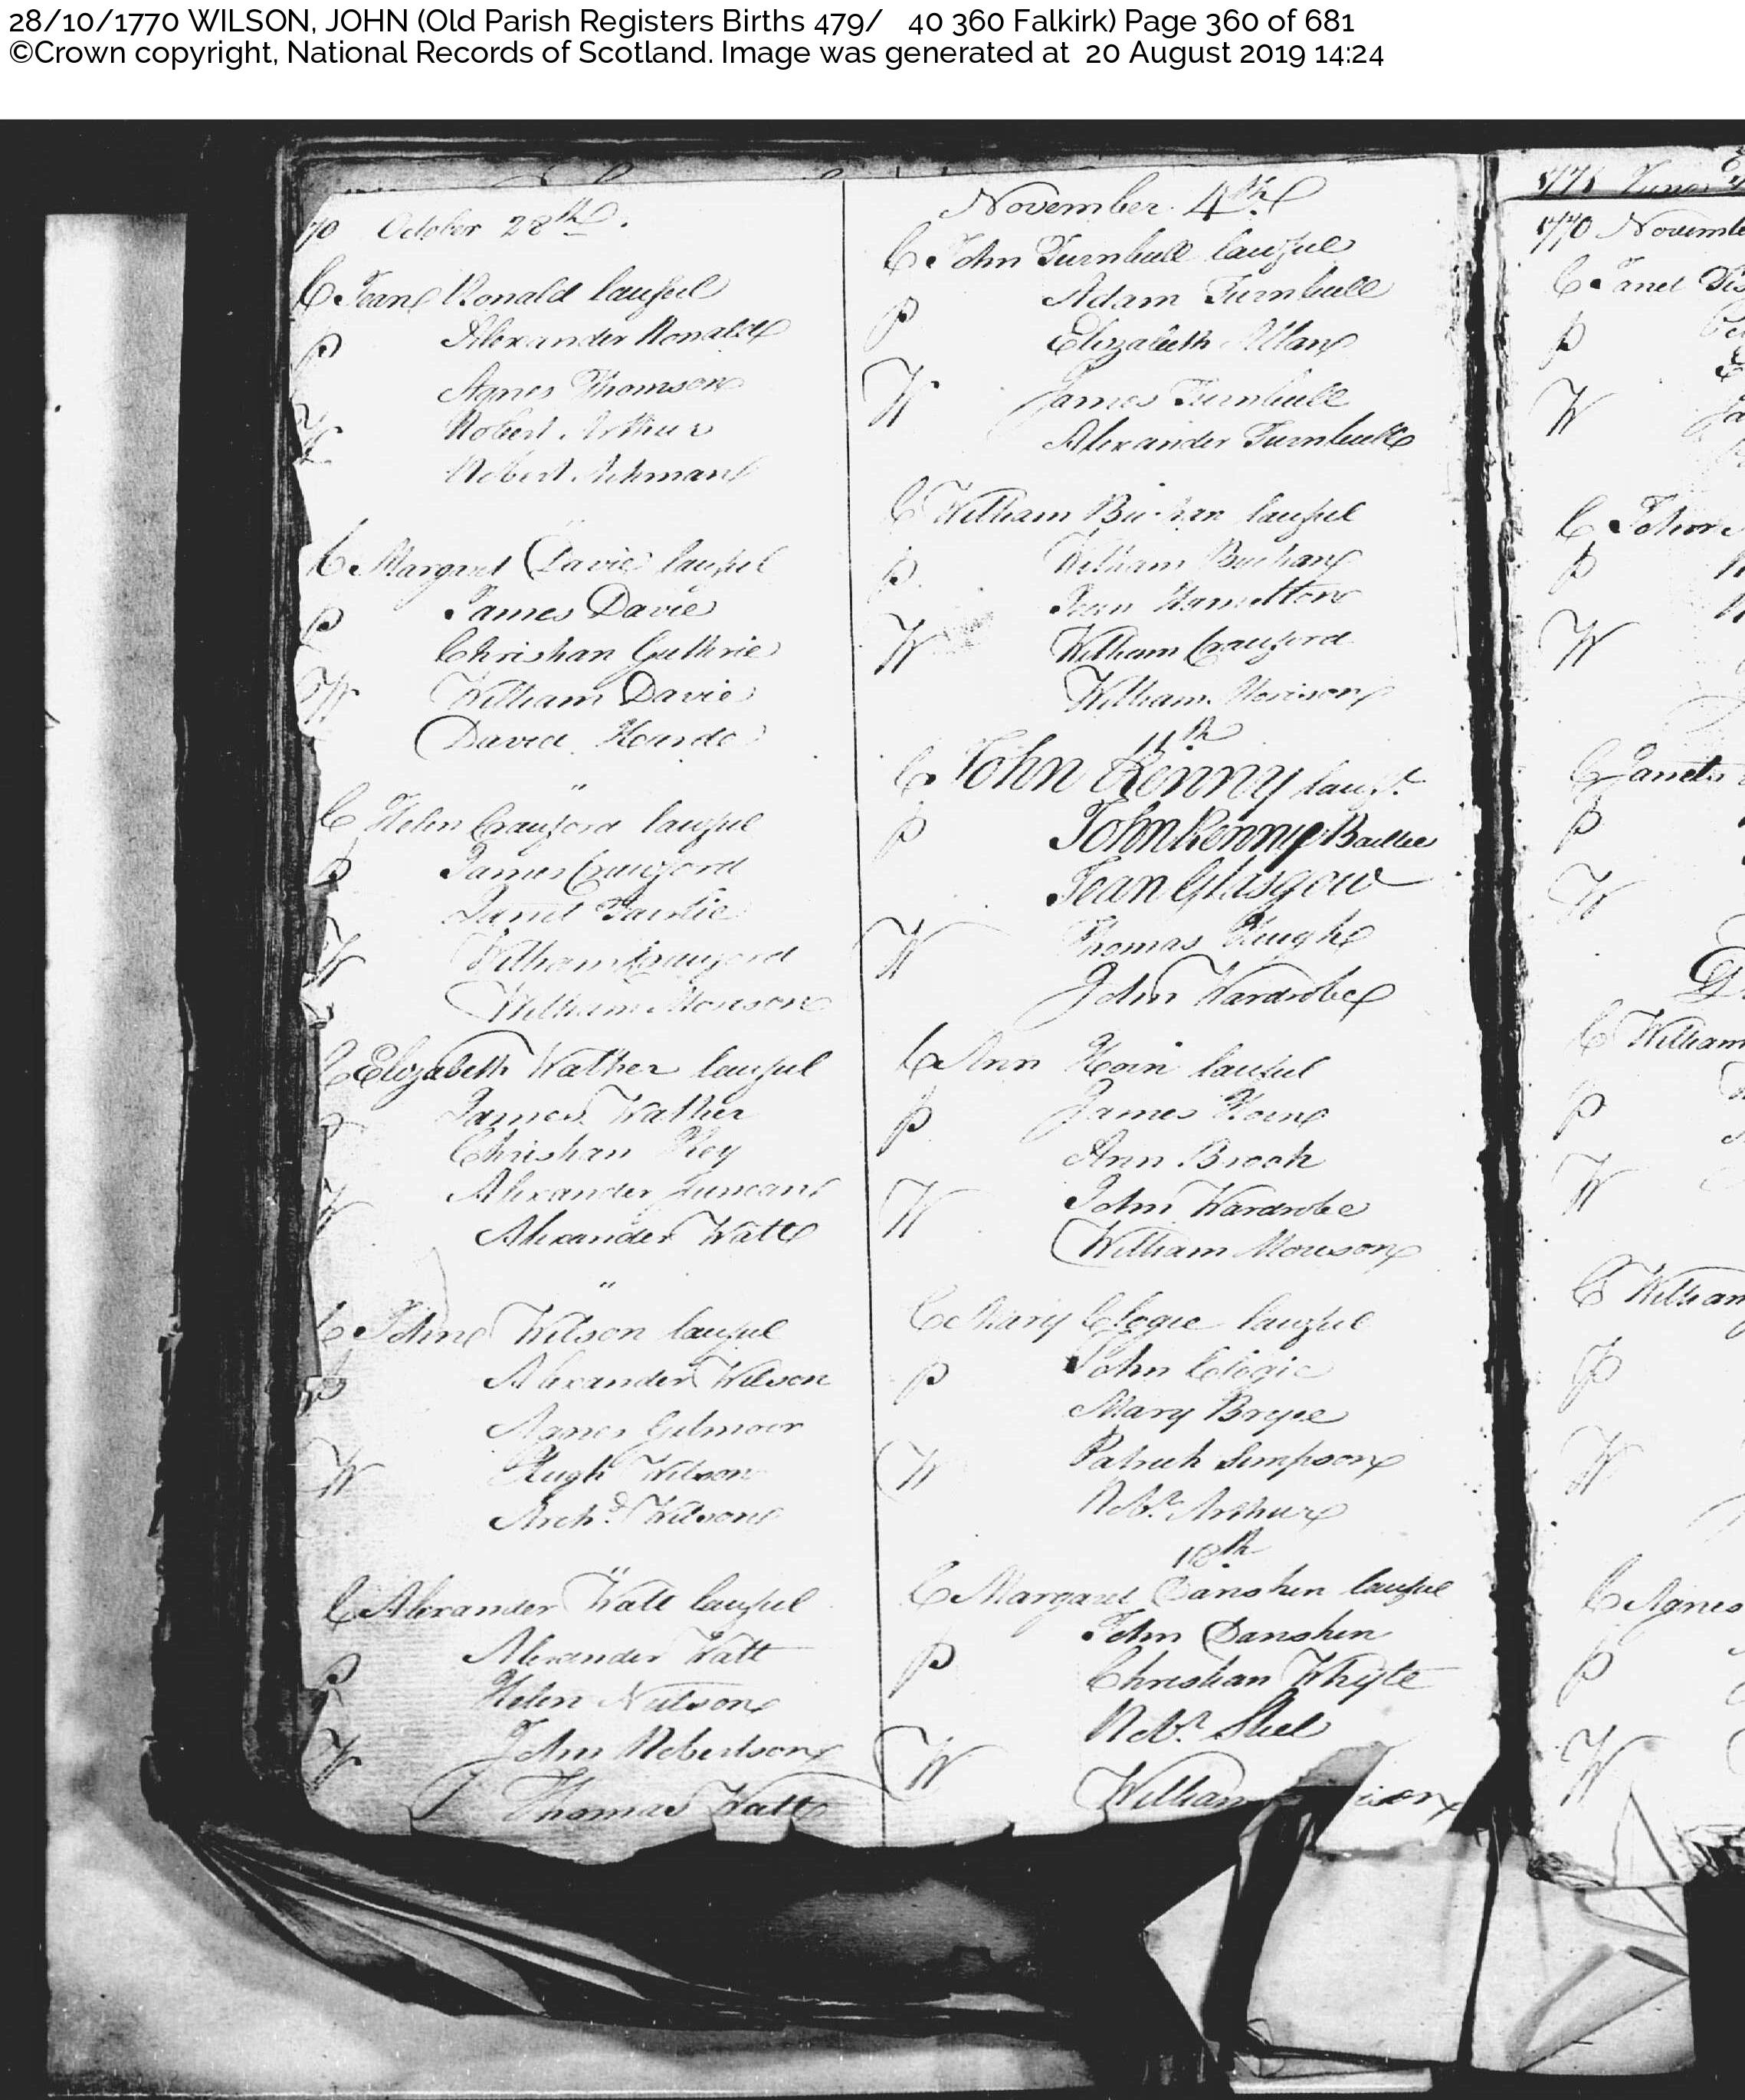 28/10/1770 WILSON, JOHN (Old Parish Registers Births 479/ 40 360 Falkirk) Page 360 of 681
©Crown copyright, National Records of Scotland. Image was generated at 20 August 2019 14:24
70 October 28th.
C Jean Ronald lauful
P Alexander Ronald
Agnes Thomson
W Robert Arthur
Robert Aikman
"
C Margaret Davie lauful
P James Davie
Christian Guthrie
W William Davie
David
"
C Helen Crauford lauful
P James Crauford
Janet Fairlie
W William Crauford
William Morison
C Elizabeth Walker lauful
P James Walker
Christian Key
W Alexander Duncan
Alexander Watt
"
C John Wilson lauful
P Alexander Wilson
Agnes Gilmour
W Hugh Wilson
Archd. Wilson
"
C Alexander Watt lauful
P Alexander Watt
Helen Neilson
W John Robertson
Thomas Watt
November 4th
C John Turnbull lauful
P Adam Turnbull
Elizabeth Allan
W James Turnbull
Alexander Turnbull
C William Buchan lauful
P William Buchan
Jean Hamilton
W William Crauford
William Morison
11th
C John Renny laufl.
P John Renny Baillie
Jean Glasgow
W Thomas Heugh
John Wardrobe
C Ann lauful
P James
Ann Brock
W John Wardrobe
William Morison
C Mary Clogie lauful
P John Clogie
Mary Bryce
W Patrick Simpson
Robr. Arthur
18th
C Margaret Danskin lauful
P John Danskin
Christian Whyte
W Robr. Steel
William ison
1770 Novemb
C Janet
P
W
C John
P
W
C Janet
P
W
C William
P
W
C William
P
W
C Agnes
P
W